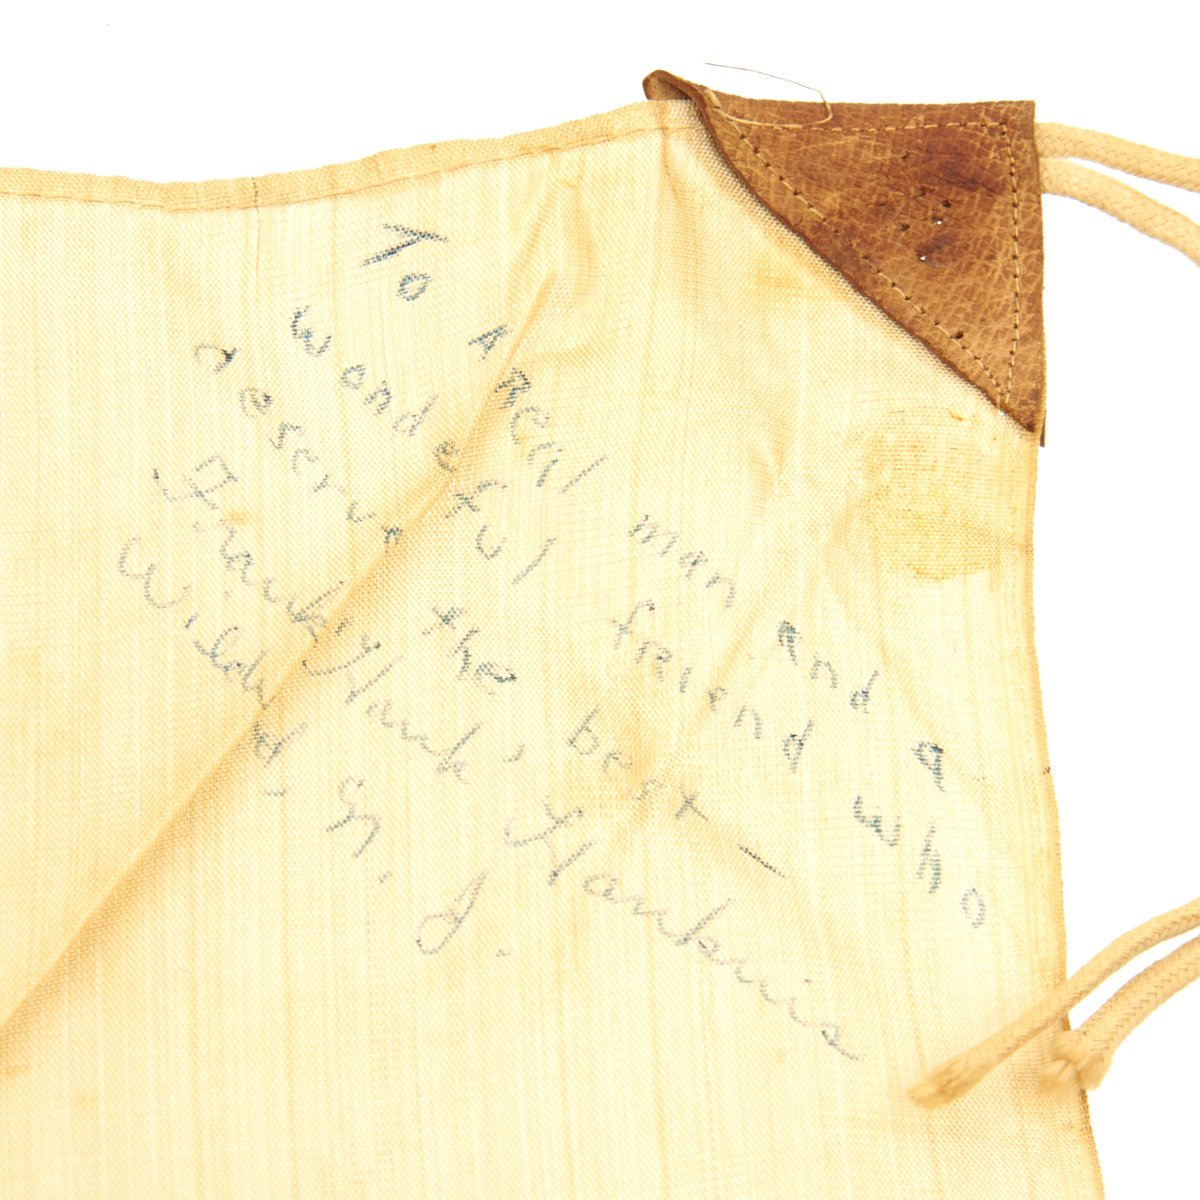 To A REAl man and a
wonderful friend who
deserve the best —
Frank "Hank"
Wildwd, N. J.